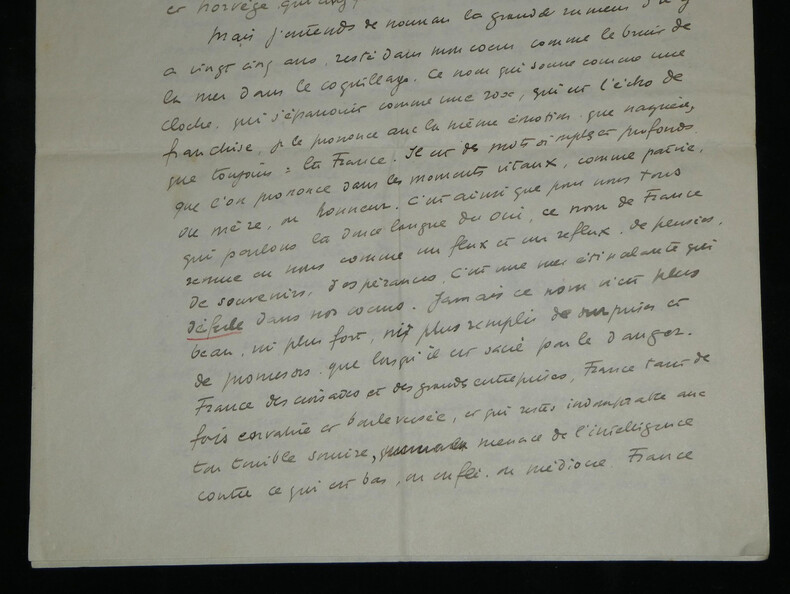 et norvège qui
Mais j'entends de nouveau la grande rumeur
a vingt cinq ans, resté dans mon cœur comme le bruit de
la mer dans le coquillage. Ce nom qui sonne comme une
cloche, qui s'épanouit comme une rose, qui est l'écho de
franchise, je le prononce avec la même émotion que naguère,
que toujours : la France. Il est des mots simples et profonds
que l'on prononce dans les moments vitaux, comme patrie,
ou mère, ou honneur. C'est ainsi que pour nous tous
qui parlons la douce langue du oui, ce nom de France
résonne en nous comme un flux et un reflux, de pensées,
de souvenirs, d'espérances. C'est une mer étincelante qui
déferle dans nos cœurs. Jamais ce nom n'est plus
beau, ni plus fort, ni plus rempli de surprises et
de promesses que lorsqu'il est sacré par le danger.
France des croisades et des grandes entreprises, France tant de
fois envahie et bouleversée, et qui restes indomptable avec
ton terrible sourire, menace de l'intelligence
contre ce qui est bas, ou enflé, ou médiocre. France